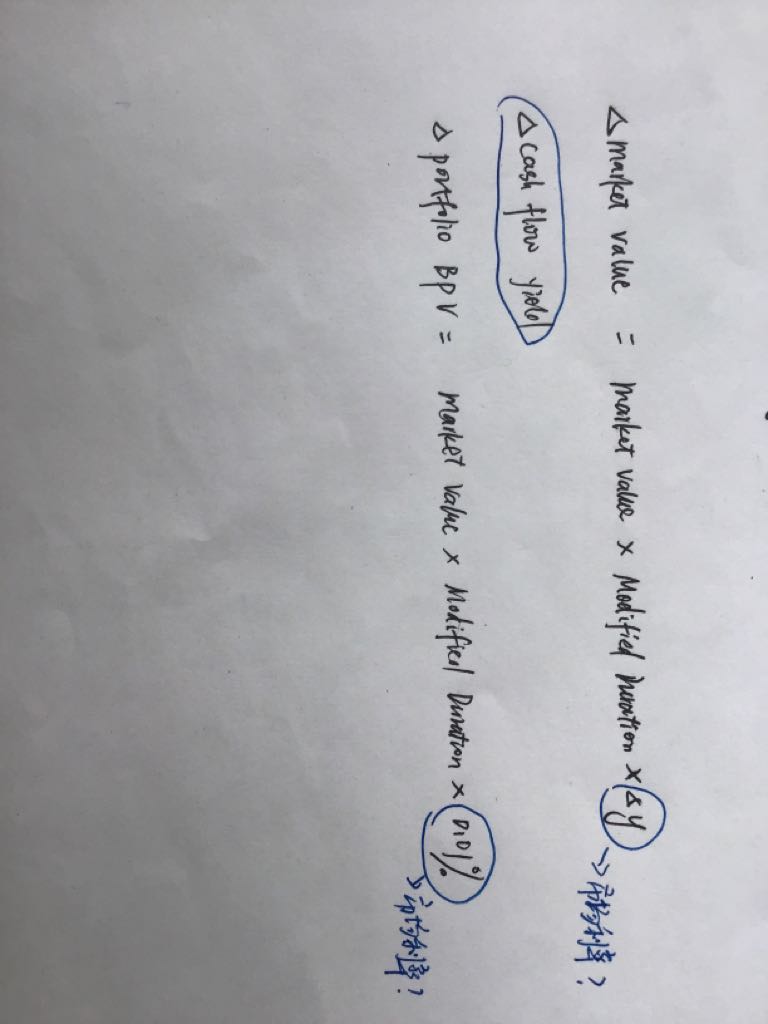 △ market value = market value × Modified Duration × △y → 市场利率?
△ cash flow yield
△ portfolio BPV = market value × Modified Duration × 0.01% → 市场利率?